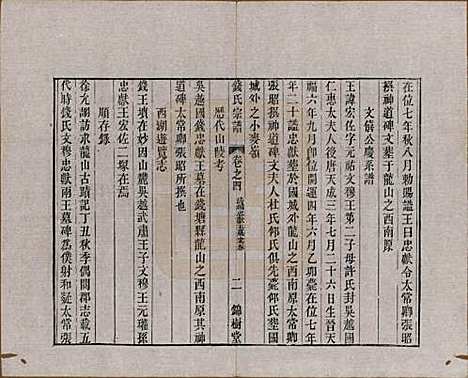 在位七年秋八月勅陽謚王曰忠獻令太常卿張昭
撰神道碑文墓在龍山之西南原
文僖公慶系譜
王諱宏佐字元祐文穆王第二子母許氏封吳越國
仁惠太夫人唐天成三年戊子七月二十六日生晉天
福六年九月卽位開運四年六月乙卯薨在位七年
年二十謚忠獻葬於國城外龍山之西南原太常卿
張昭撰神道碑文夫人杜氏仰氏俱先薨仰氏葬國
城外之小麥嶺
錢氏宗譜
卷之四
二
錦樹堂
歷代山陵考
吳越國錢忠獻王墓在錢塘縣龍山之西南原其神
道碑太常卿張昭所撰也
西湖遊覽志
錢王墳在妙因山葬吳越武肅王子文穆王元瓘孫
忠獻王宏佐二塚在焉
順存錄
徐允謌訪求龍山古蹟記丁丑秋季偶閱郡志載五
代時錢氏文穆忠獻兩王墓碑爲僕射和凝太常張